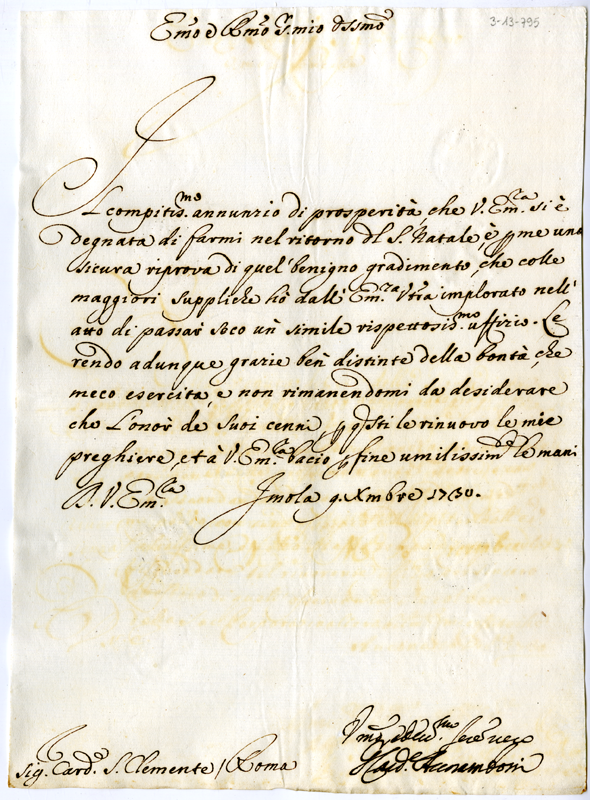 3-13-795
Emo e Rmo S. mio Ossmo
Il compitismo annunzio di prosperità che V. Emza si è
degnata di farmi nel ritorno del S. Natale, è p me una
sicura riprova di quel benigno gradimento, che colle
maggiori suppliche hò dall' Emza Vra implorato nell'
atto di passar seco un simile rispettosismo uffizio. Le
rendo adunque grazie ben distinte della bontà, che
meco esercita, e non rimanendomi da desiderare
che l'onor de suoi cenni, p qsti le rinuovo le mie
preghiere, et à V. Emza bacio p fine umilissimte le mani
D. V. Emza Imola 9. Xmbre 1730.
Sig. Card. S. Clemente / Roma